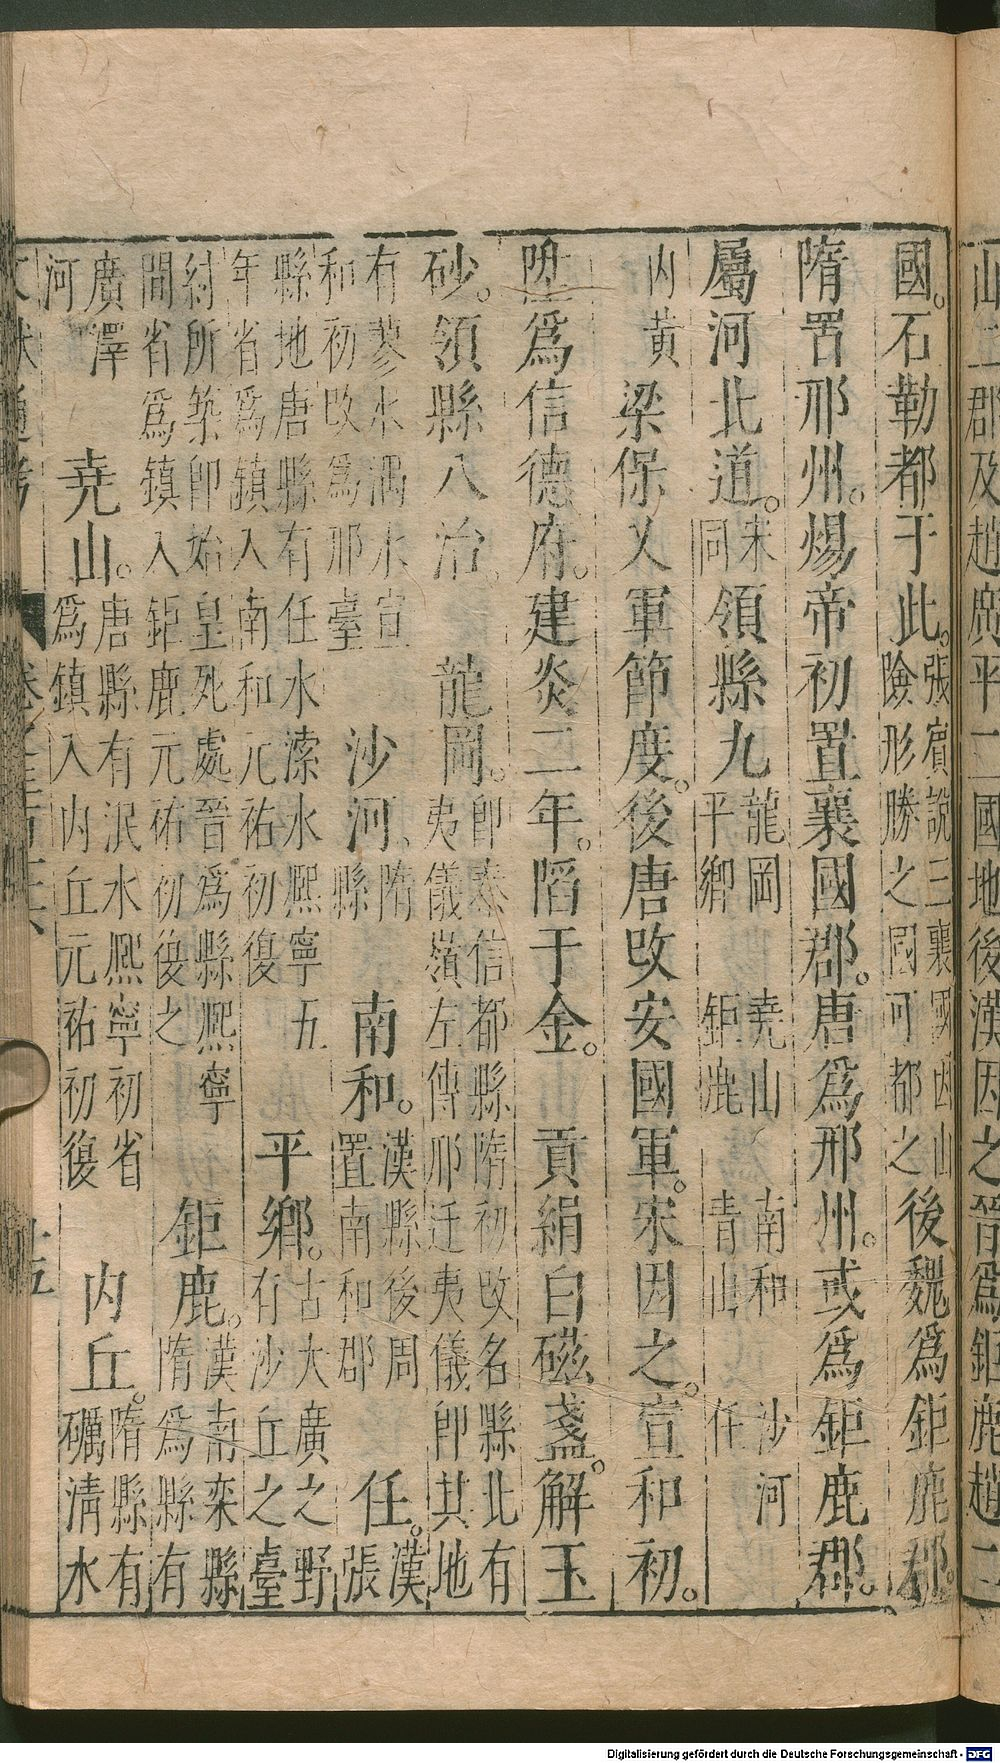 國。石勒都于此。張賓說三襄國因山險形勝之國可都之後魏爲鉅鹿郡。
隋置邢州。煬帝初置襄國郡。唐爲邢州。或爲鉅鹿郡。
屬河北道。宋同領縣九龍岡 堯山 南和 沙河 平鄉 鉅鹿 青山 任
内黃 梁保乂軍節度。後唐改安國軍。宋因之。宣和初。
陞爲信德府。建炎二年。䧟于金。貢絹白磁盞。解玉
砂。領縣八治。龍岡。卽秦信都縣隋初改名縣北有夷儀嶺左傳邢迁夷儀卽其地
有蓼水渦水宣和初改爲邢臺 沙河。隋縣 南和。漢縣後周置南和郡 任。漢張
縣地唐縣有任水滦水熙寧五年省爲鎮入南和元祐初復 平鄉。古大廣之野有沙丘之臺
紂所築卽始皇死處晉爲縣熙寧間省爲鎮入鉅鹿元祐初復之 鉅鹿。漢南栾縣隋爲縣有
廣澤河 堯山。唐縣有泯水熙寧初省爲鎮入内丘元祐初復 内丘。隋縣有礪清水
文獻通考 卷之三百十六 十五
此二郡及趙廣平二國地後漢因之晉爲鉅鹿趙二
Digitalisierung gefördert durch die Deutsche Forschungsgemeinschaft - DFG